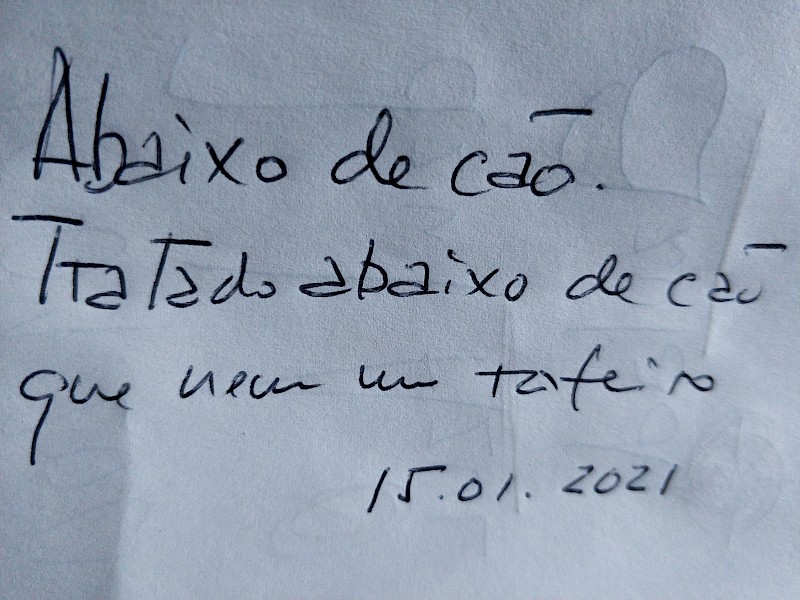 Abaixo de cão.
Tratado abaixo de cão
que nem um tafeiro
15.01.2021